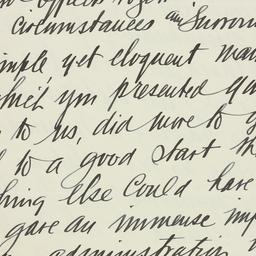 circumstances any
imple, yet eloquent man
which you presented
to us, did more to
to a good start th
thing else could have
gave an immense imp
administration